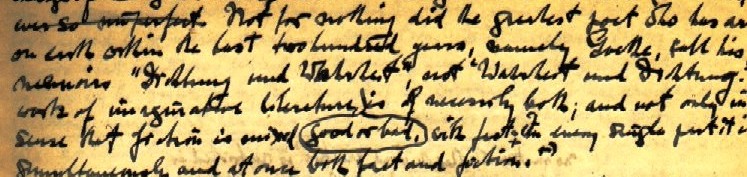 ever so imperfect. Not for nothing did the greatest poet who has
on earth within the last two hundred years, namely Goethe, call his
memoirs "Dichtung und Wahrheit", not "Wahrheit und Dichtung".
work of imaginative literature is of necessity both; and not only in
sense that fiction is mixed (good or bad,) with fact: in every single part it is
simultaneously and at once both fact and fiction.